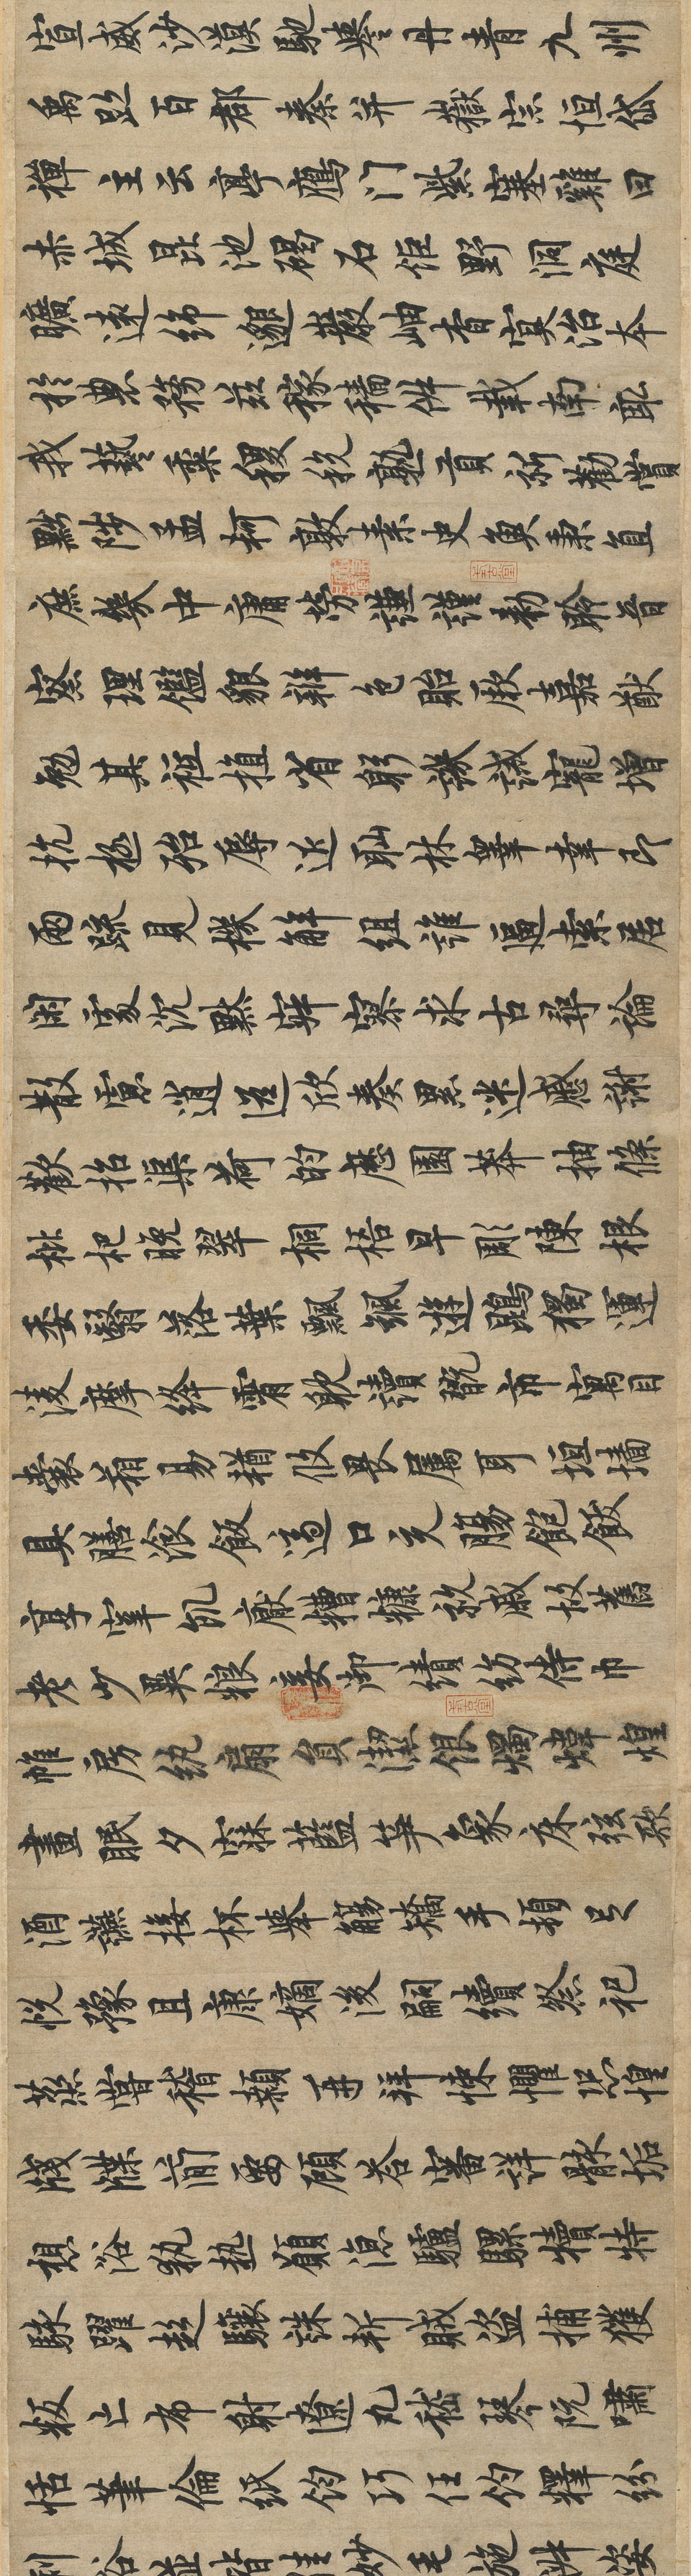 宣威沙漠馳譽丹青九州
禹跡百郡秦并嶽宗恒岱
禪主云亭鴈門紫塞雞田
赤城昆池碣石鉅野洞庭
曠遠綿邈巖岫杳冥治本
於農務茲稼穡俶載南畝
我藝黍稷稅熟貢新勸賞
黜陟孟軻敦素史魚秉直
庶幾中庸勞謙謹勑聆音
察理鑑貌辯色貽厥嘉猷
勉其祗植省躬譏誡寵增
抗極殆辱近恥林皋幸即
兩疏見機解組誰逼索居
閑處沉默寂寥求古尋論
散慮逍遙欣奏累遣慼謝
歡招渠荷的歷園莽抽條
枇杷晚翠桐梧早彫陳根
委翳落葉飄颻遊鵾獨運
凌摩絳霄耽讀翫市寓目
囊箱易輶攸畏屬耳垣墻
具膳飡飯適口充腸飽飫
享宰飢厭糟糠親戚故舊
老少異糧妾御績紡侍巾
帷房紈扇員潔銀燭煒煌
晝眠夕寐藍筍象床弦歌
酒讌接杯舉觴矯手頓足
悅豫且康嫡後嗣續祭祀
蒸嘗稽顙再拜悚懼恐惶
牋牒簡要顧答審詳骸垢
想浴執熱願涼驢騾犢特
駭躍超驤誅斬賊盜捕獲
叛亡布射遼丸嵇琴阮嘯
恬筆倫紙鈞巧任釣釋紛
利俗並皆佳妙毛施淑姿